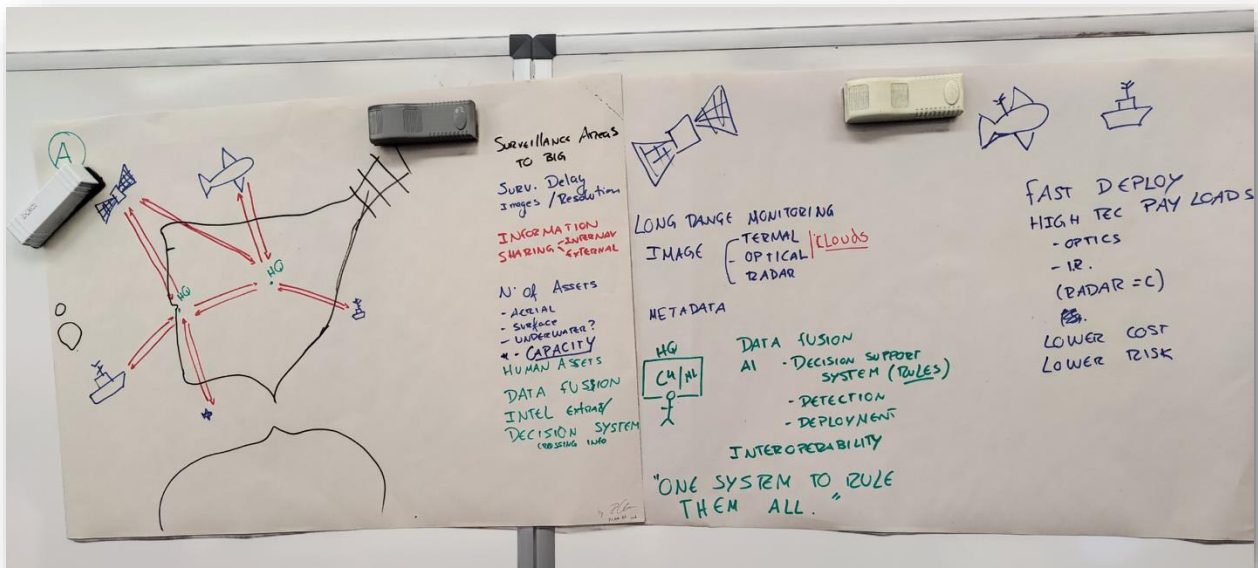 A
HQ
HQ
SURVEILLANCE AREAS
TO BIG
SURV. Delay
Images / Resolution
INFORMATION
SHARING - INTERNAL
EXTERNAL
Nº OF ASSETS
- AERIAL
- SURFACE
- UNDERWATER?
- CAPACITY
HUMAN ASSETS
DATA FUSION
INTEL
DECISION SYSTEM
INFO
LONG DANGE MONITORING
IMAGE - TERMAL
- OPTICAL
RADAR
CLOUDS
METADATA
HQ
DATA FUSION
AI - DECISION SUPPORT
SYSTEM (RULES)
- DETECTION
- DEPLOYMENT
INTEROPERABILITY
"ONE SYSTEM TO RULE
THEM ALL."
FAST DEPLOY
HIGH TEC PAY LOADS
- OPTICS
- I.R.
(RADAR = C)
LOWER COST
LOWER RISK